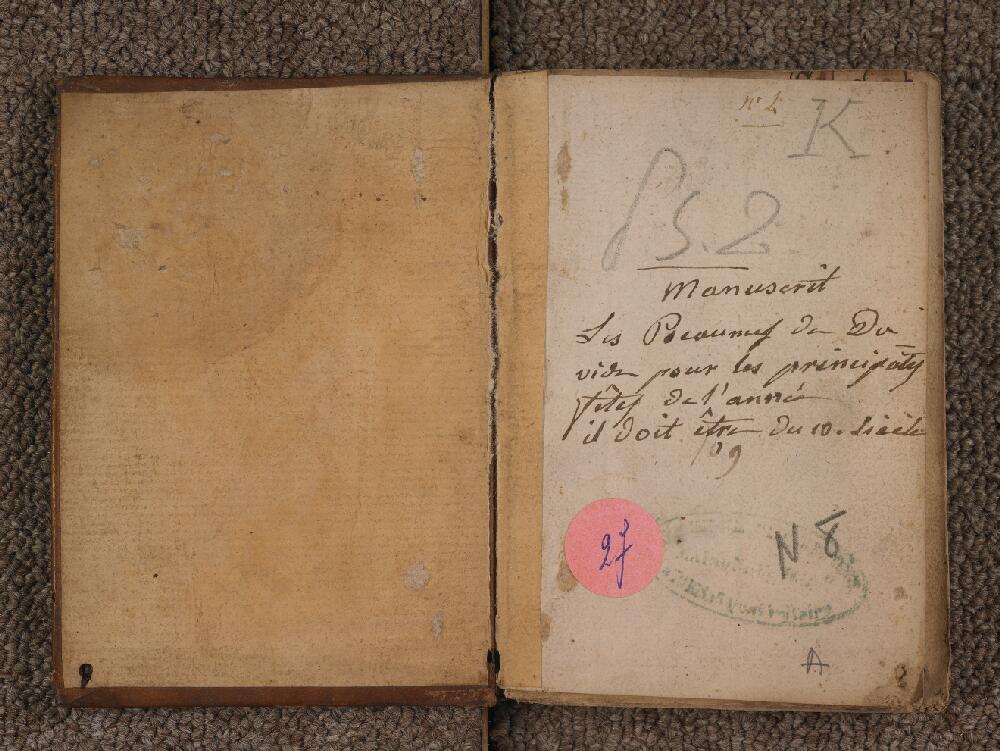 K
Ps. 2
Manuscrit
Les Pseaumes de Da
vide pour les principales
fêtes de l'année
il doit être du 10. siècle
109
27
N 8
A